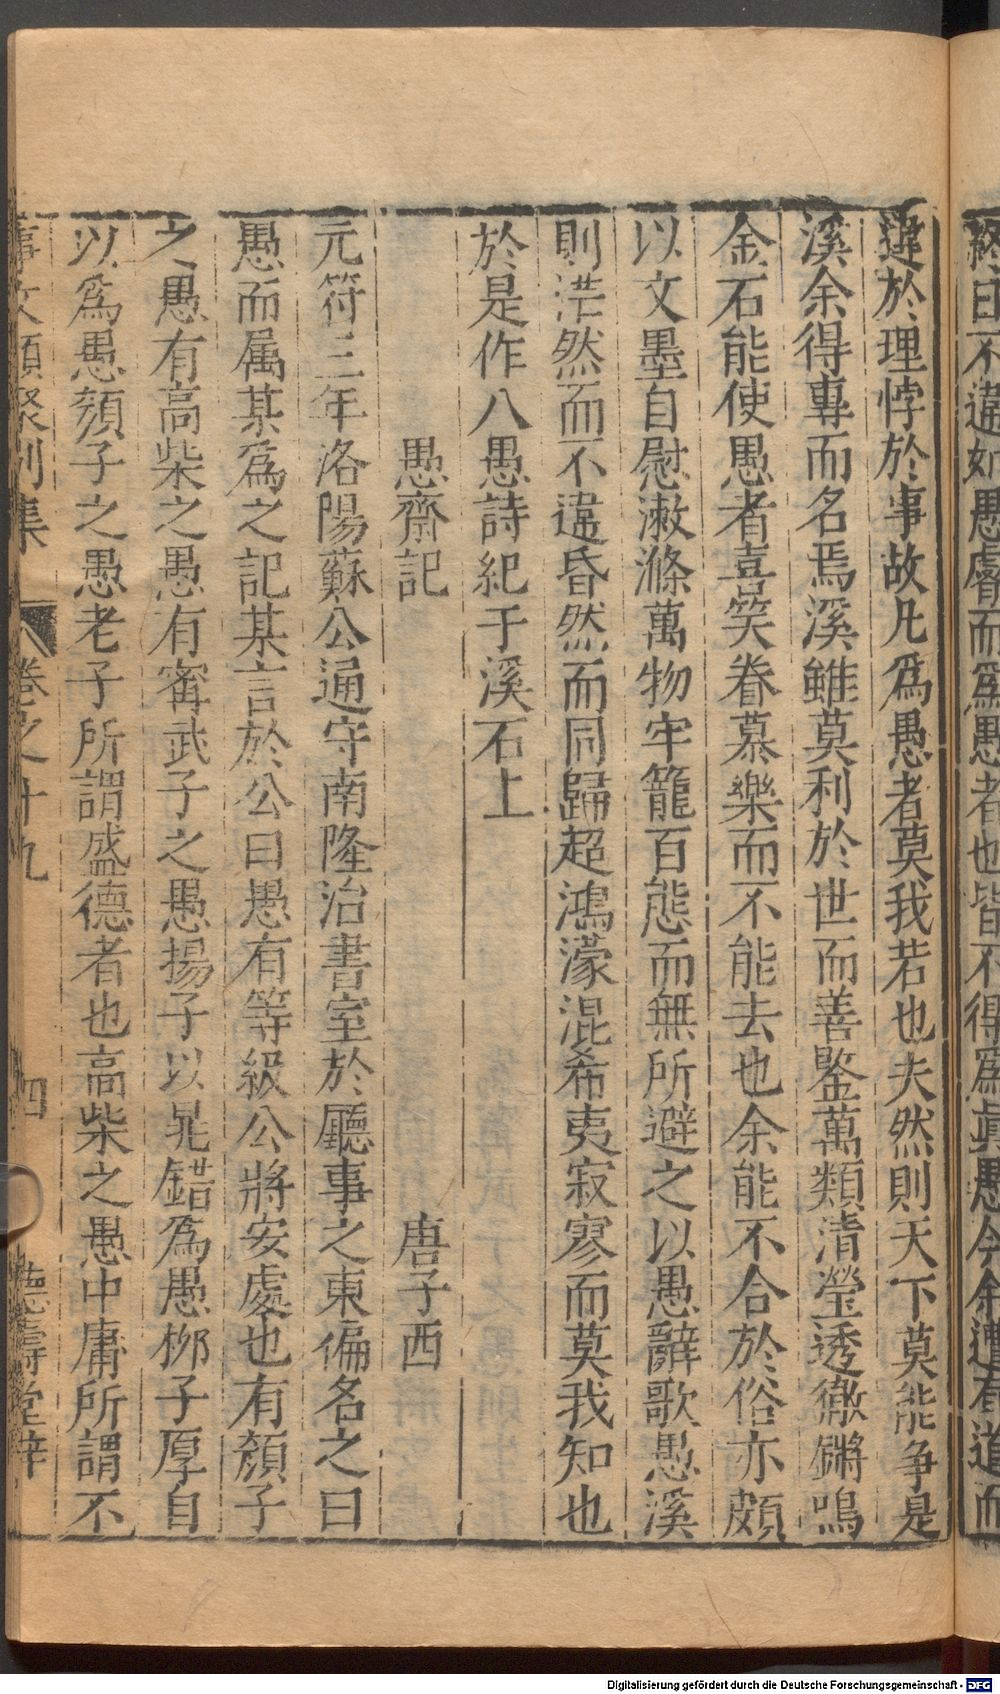 終日不違如愚睿而爲愚者也皆不得爲眞愚今余遭有道而
違於理悖於事故凡爲愚者莫我若也夫然則天下莫能争是
溪余得專而名焉溪雖莫利於世而善鑒萬類清瑩透徹鏘鳴
金石能使愚者喜笑眷慕樂而不能去也余能不合於俗亦頗
以文墨自慰漱滌萬物牢籠百態而無所避之以愚辭歌愚溪
則茫然而不違昏然而同歸超鴻濛混希夷寂寥而莫我知也
於是作八愚詩紀于溪石上
愚齋記 唐子西
元符三年洛陽蘇公通守南隆治書室於廳事之東偏名之曰
愚而属某爲之記某言於公曰愚有等級公將安處也有顏子
之愚有高柴之愚有甯武子之愚揚子以晁錯爲愚栁子厚自
以爲愚顏子之愚老子所謂盛德者也高柴之愚中庸所謂不
事文類聚别集 卷之十九 四 德壽堂梓
Digitalisierung gefördert durch die Deutsche Forschungsgemeinschaft - DFG